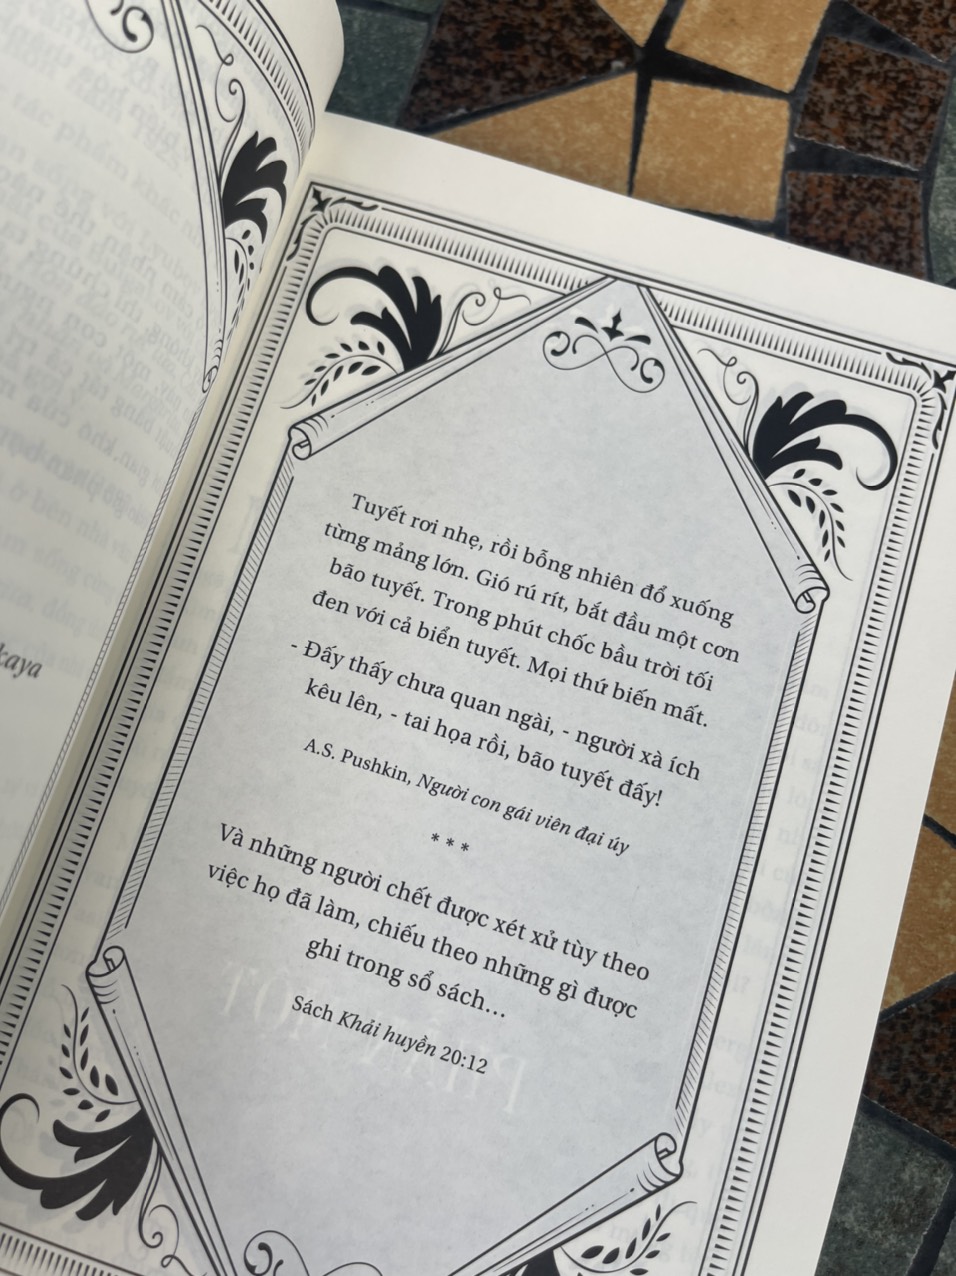 Tuyết rơi nhẹ, rồi bỗng nhiên đổ xuống
từng mảng lớn. Gió rú rít, bắt đầu một cơn
bão tuyết. Trong phút chốc bầu trời tối
đen với cả biển tuyết. Mọi thứ biến mất.
- Đấy thấy chưa quan ngài, - người xà ích
kêu lên, - tai họa rồi, bão tuyết đấy!
A.S. Pushkin, Người con gái viên đại úy
* * *
Và những người chết được xét xử tùy theo
việc họ đã làm, chiếu theo những gì được
ghi trong sổ sách...
Sách Khải huyền 20:12